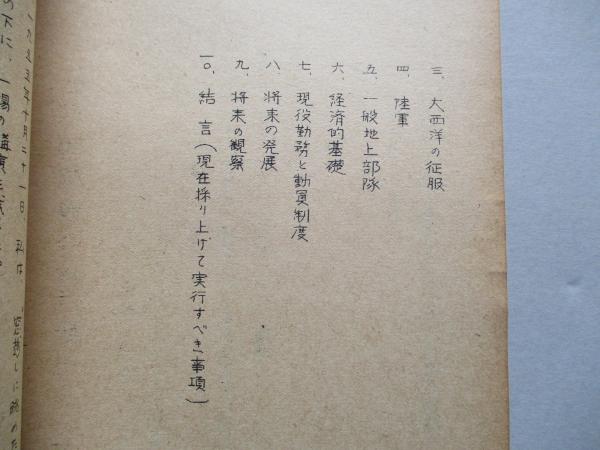 三、大西洋の征服
四、陸軍
五、一般地上部隊
六、経済的基礎
七、現役勤務と動員制度
八、将来の発展
九、将来の観察
一〇、結言(現在採り上げて実行すべき事項)
一九五五年十月二十一日、私は、
の下に、一場の講演を試みた。